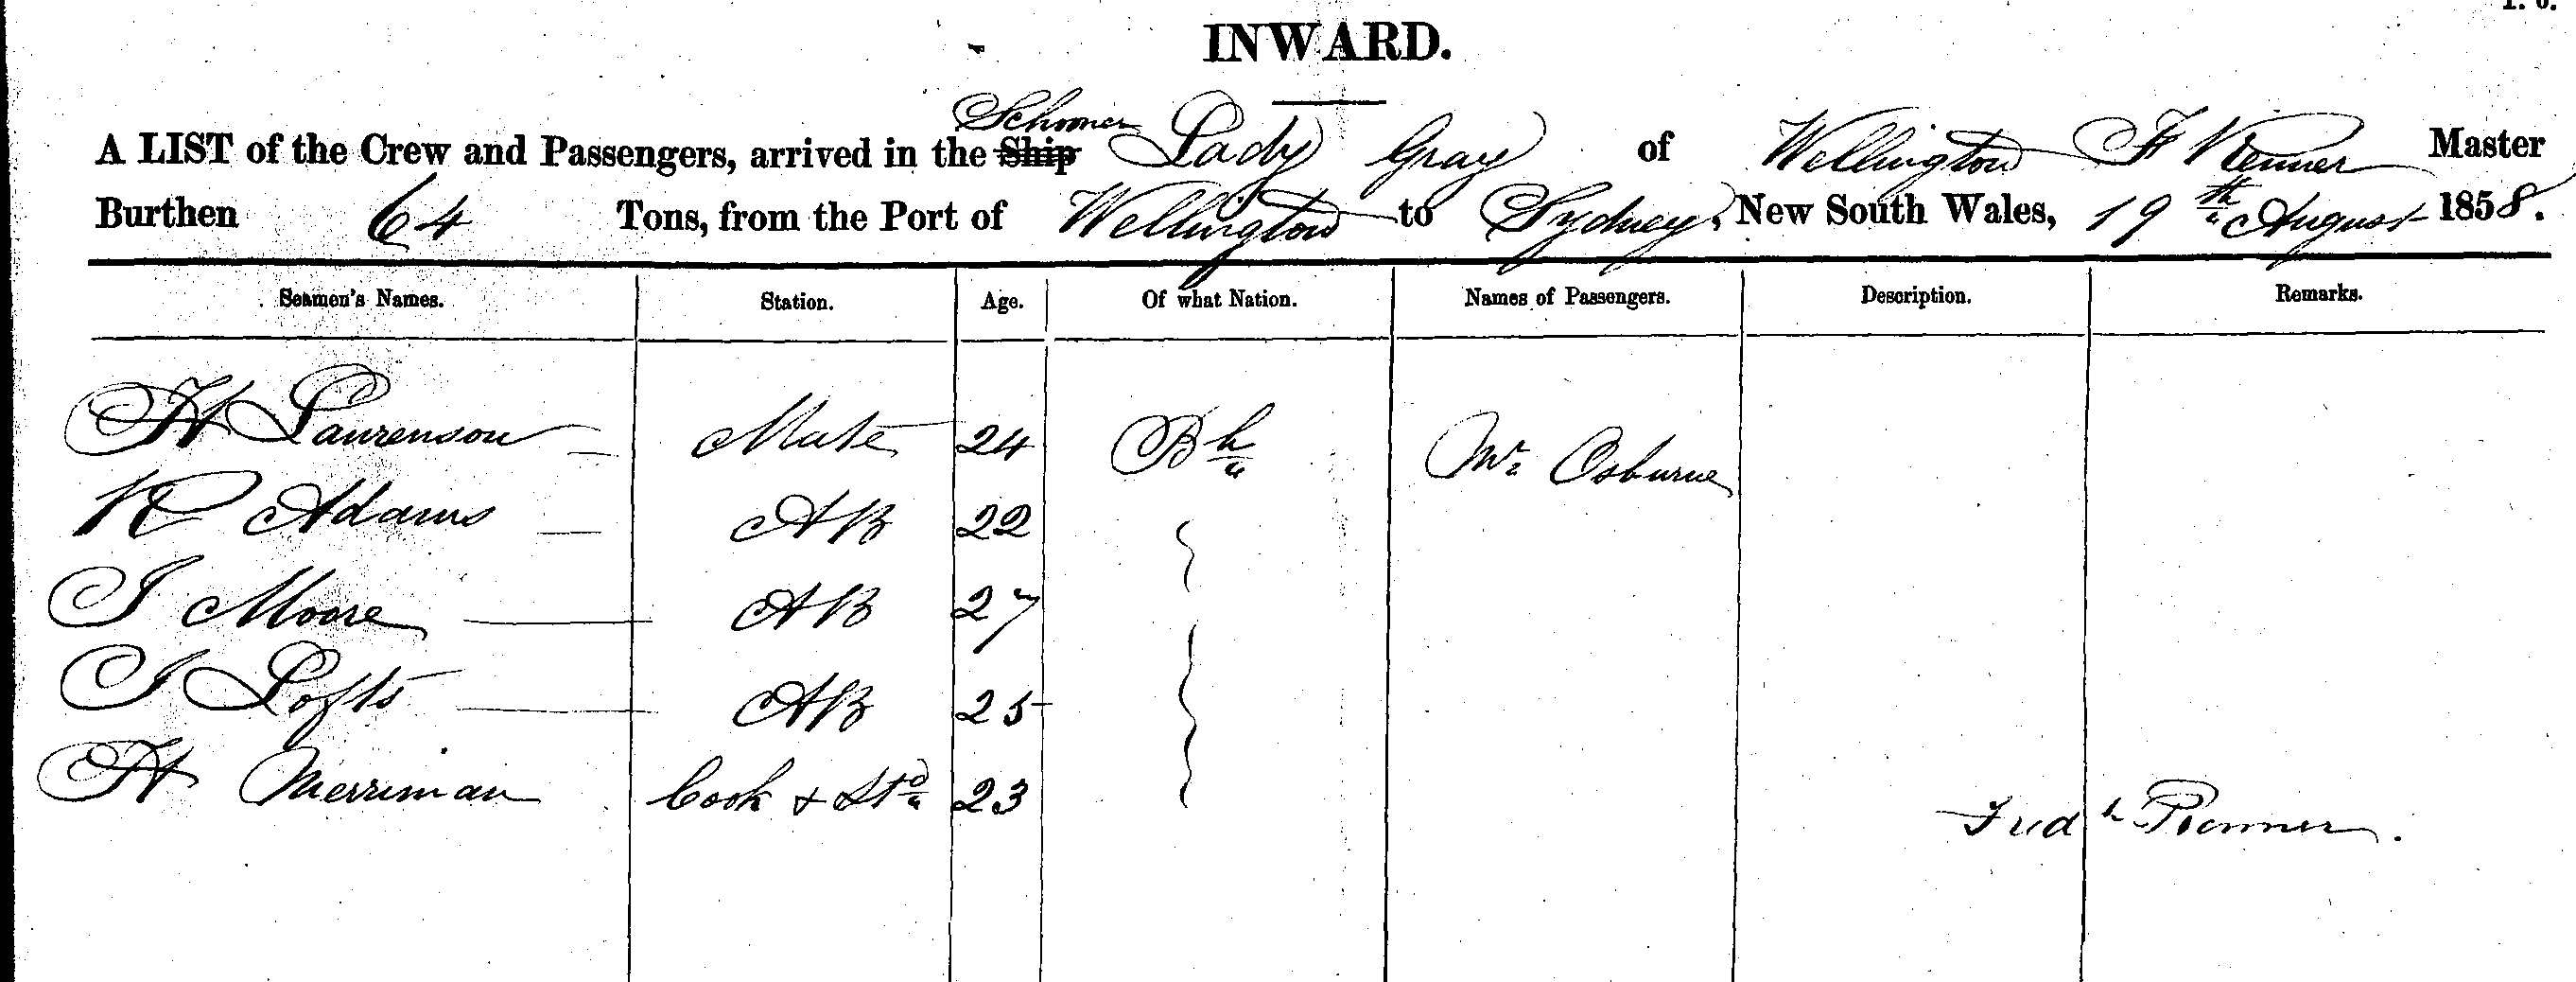 INWARD.
A LIST of the Crew and Passengers, arrived in the Ship Schooner Lady Gray of Wellington F Renner Master
Burthen 64 Tons, from the Port of Wellington to Sydney, New South Wales, 19th August 1858.
Seamen's Names. Station. Age. Of what Nation. Names of Passengers. Description. Remarks.
H Laurenson Mate 24 Bh Mr Osburne
R Adams AB 22
J Moore AB 27
J Lofts AB 25
H Merriman Cook & Std 23
Fredk Renner.